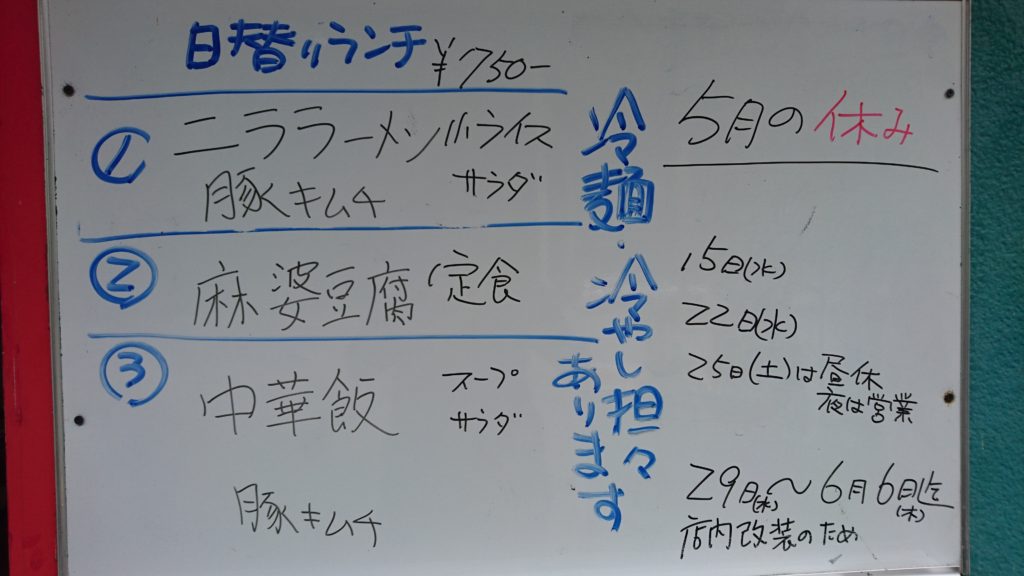 日替りランチ ¥750-
① ニララーメン 小ライス
豚キムチ サラダ
② 麻婆豆腐 定食
③ 中華飯 スープ
サラダ
豚キムチ
冷麺・冷やし担々
あります
5月の休み
15日(水)
22日(水)
25日(土)は昼休
夜は営業
29日(水)〜6月6日迄
(木)
店内改装のため